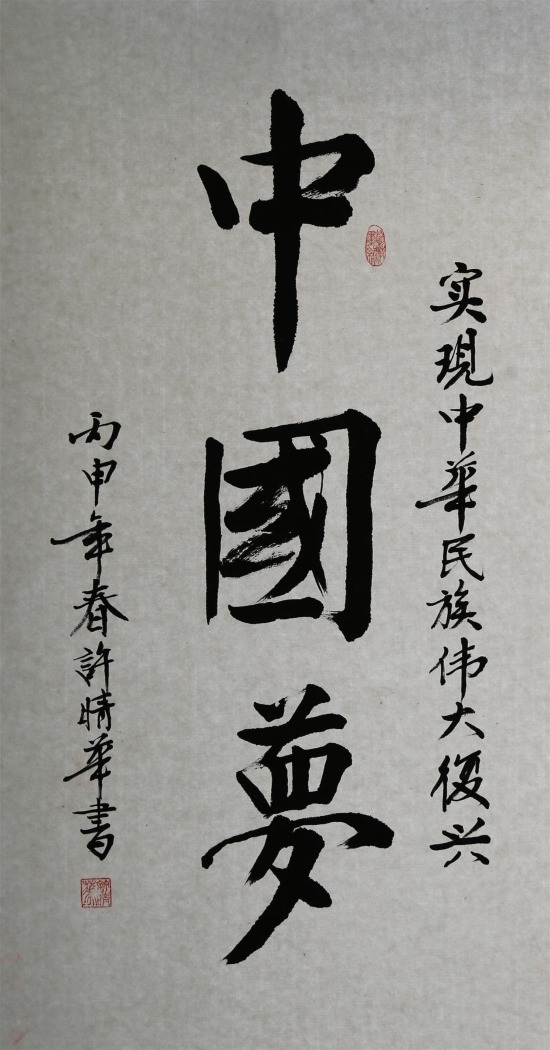 实現中华民族伟大復兴
中國夢
丙申年春許晴華書